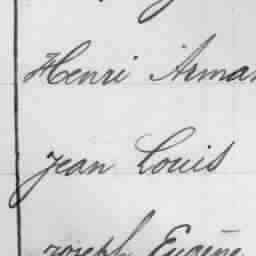 Henri Arman
Jean Louis
Joseph Eugène